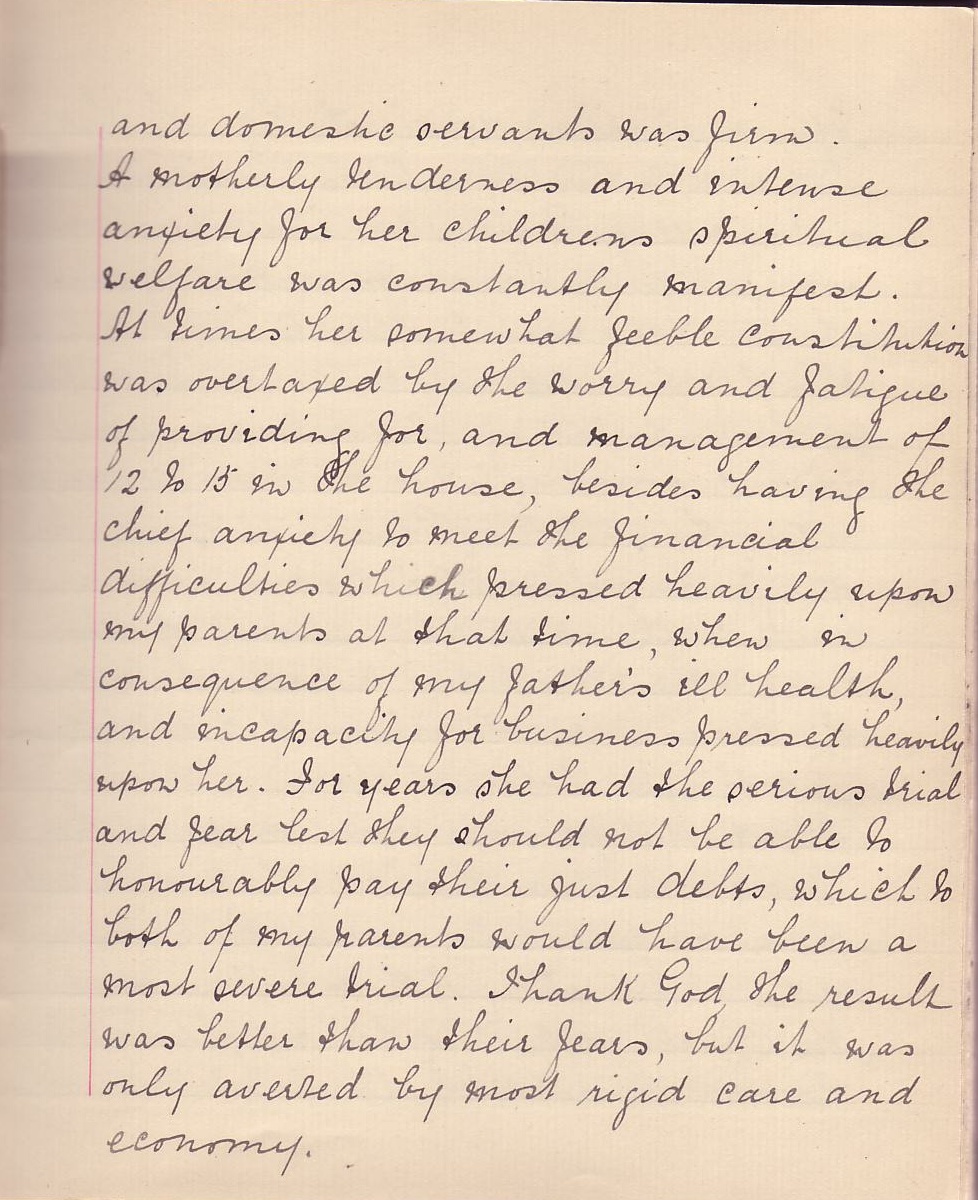 and domestic servants was firm.
A motherly tenderness and intense
anxiety for her childrens spiritual
welfare was constantly manifest.
At times her somewhat feeble constitution
was overtaxed by the worry and fatigue
of providing for, and management of
12 to 15 in the house, besides having the
chief anxiety to meet the financial
difficulties which pressed heavily upon
my parents at that time, when in
consequence of my father's ill health,
and incapacity for business pressed heavily
upon her. For years she had the serious trial
and fear lest they should not be able to
honourably pay their just debts, which to
both of my parents would have been a
most severe trial. Thank God, the result
was better than their fears, but it was
only averted by most rigid care and
economy.